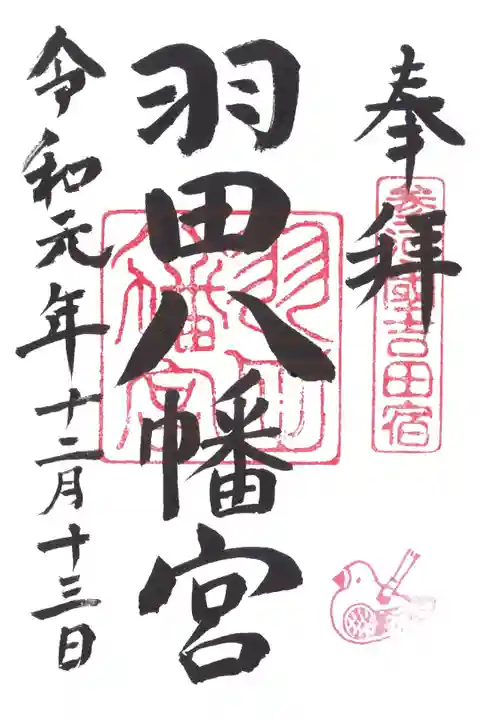 奉拜
参河國吉田宿
羽田八幡宮
羽田
八幡宮
令和元年十二月十三日